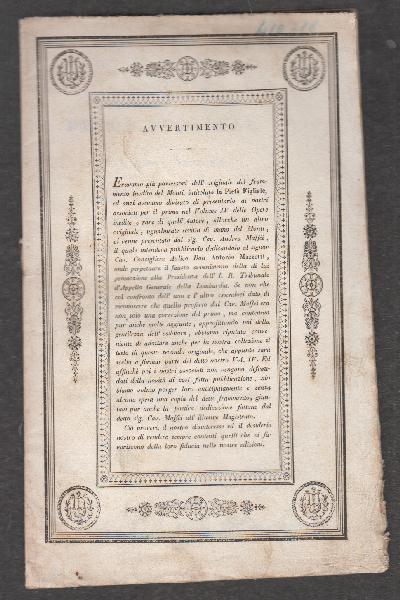 AVVERTIMENTO
Eravamo già possessori dell' originale del fram-
mento inedito del Monti, intitolato la Pietà Figliale,
ed anzi avevamo divisato di presentarlo ai nostri
associati per il primo nel Volume IV delle Opere
inedite e rare di quell' autore, allorchè un altro
originale, egualmente scritto di mano del Monti,
ci venne presentato dal sig. Cav. Andrea Maffei,
il quale intendeva pubblicarlo dedicandolo al signor
Cav. Consigliere Aulico Don Antonio Mazzetti,
onde perpetuare il fausto avvenimento della di lui
promozione alla Presidenza dell' I. R. Tribunale
d'Appello Generale della Lombardia. Se non che
col confronto dell' uno e l' altro essendoci dato di
riconoscere che quello proferto dal Cav. Maffei era
non solo una correzione del primo, ma conteneva
pur anche molte aggiunte, approfittando noi della
gentilezza dell' esibitore, abbiamo riputato conve-
niente di adottare anche per la nostra collezione il
testo di questo secondo originale, che appunto sarà
scelto a formar parte del detto nostro Vol. IV. Ed
affinchè poi i nostri associati non vengano defrau-
dati della novità di così fatta pubblicazione, ab-
biamo voluto porger loro anticipatamente e senza
alcuna spesa una copia del detto frammento, giun-
tavi pur anche la poetica dedicazione fattane dal
detto sig. Cav. Maffei all' illustre Magistrato.
Ciò proverà il nostro disinteresse ed il desiderio
nostro di rendere sempre contenti quelli che ci fa-
voriscono della loro fiducia nelle nostre edizioni.